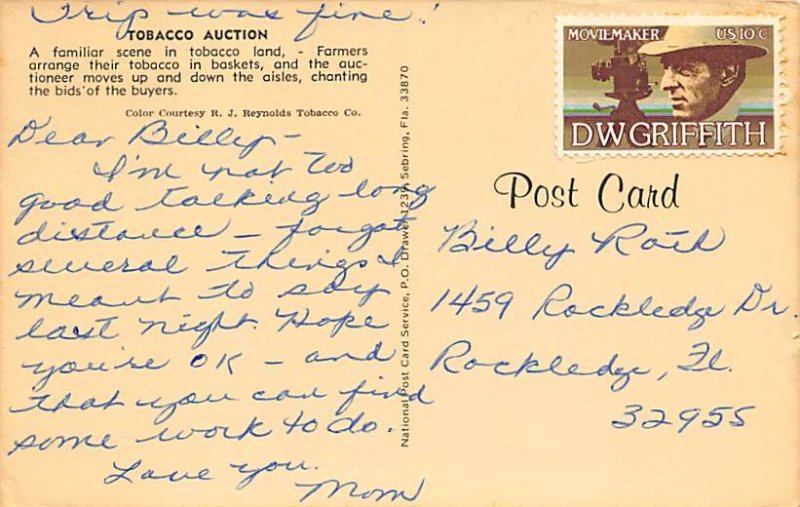 Trip was fine!
TOBACCO AUCTION
A familiar scene in tobacco land, - Farmers
arrange their tobacco in baskets, and the auc-
tioneer moves up and down the aisles, chanting
the bids of the buyers.
Color Courtesy R. J. Reynolds Tobacco Co.
Dear Billy -
I'm not too
good talking long
distance - forgot
several things I
meant to say
last night. Hope
you're OK - and
that you can find
some work to do.
Love you.
Mom
National Post Card Service, P.O. Drawer 1239, Sebring, Fla. 33870
MOVIEMAKER US 10 C
DW GRIFFITH
Post Card
Billy Roth
1459 Rockledge Dr.
Rockledge, Fl.
32955